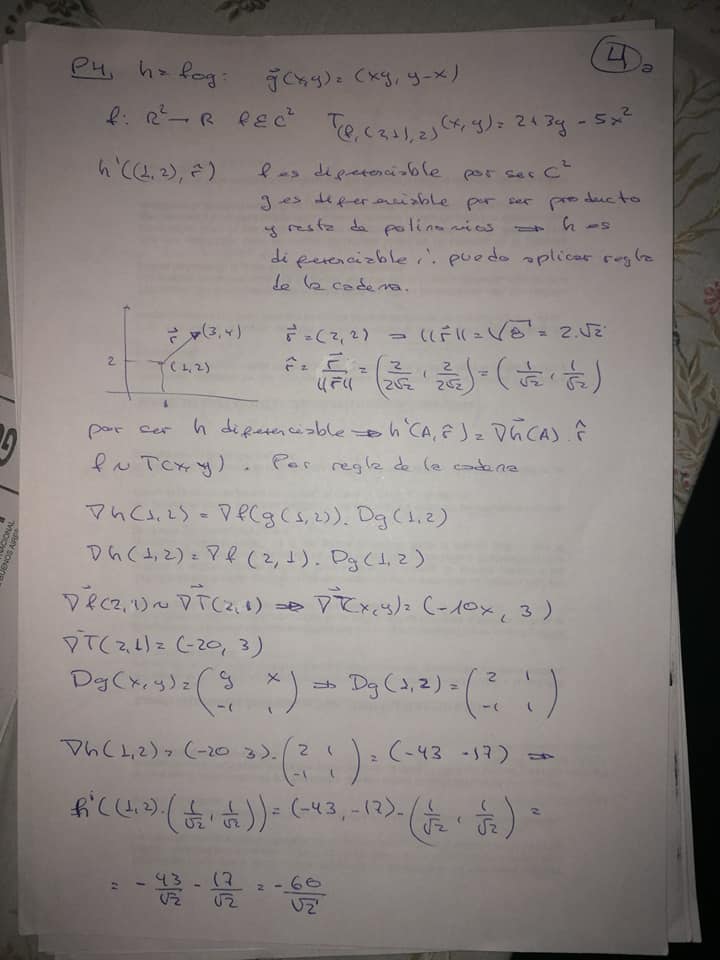 4a
P4, h = fog: g⃗(x,y) = (xy, y-x)
f: R² → R f ∈ C² T(f, (2,1), 2) (x, y) = 2+3y - 5x²
h'((1,2), r̂) f es diferenciable por ser C²
g es diferenciable por ser producto
y resta de polinomios ⇒ h es
diferenciable ∴ puedo aplicar regla
de la cadena.
r⃗ (3,4) r⃗ = (2,2) ⇒ ||r⃗|| = √8 = 2.√2
2 (1,2) r̂ = r⃗/||r⃗|| = (2/2√2 , 2/2√2) = (1/√2 , 1/√2)
1
por ser h diferenciable ⇒ h'(A, r̂) = ∇⃗h(A) . r̂
f ~ T(x,y) . Por regla de la cadena
∇h(1,2) = ∇f(g(1,2)). Dg(1,2)
∇h(1,2) = ∇f (2,1) . Dg(1,2)
∇⃗f(2,1) ~ ∇⃗T(2,1) ⇒ ∇⃗T(x,y) = (-10x, 3)
∇⃗T(2,1) = (-20, 3)
Dg(x,y) = (y x ; -1 1) ⇒ Dg(1,2) = (2 1 ; -1 1)
∇h(1,2) = (-20 3). (2 1 ; -1 1) = (-43 -17) ⇒
h'((1,2).(1/√2 , 1/√2)) = (-43, -17).(1/√2 , 1/√2) =
= - 43/√2 - 17/√2 = - 60/√2
NACIONAL
BUENOS AIRES